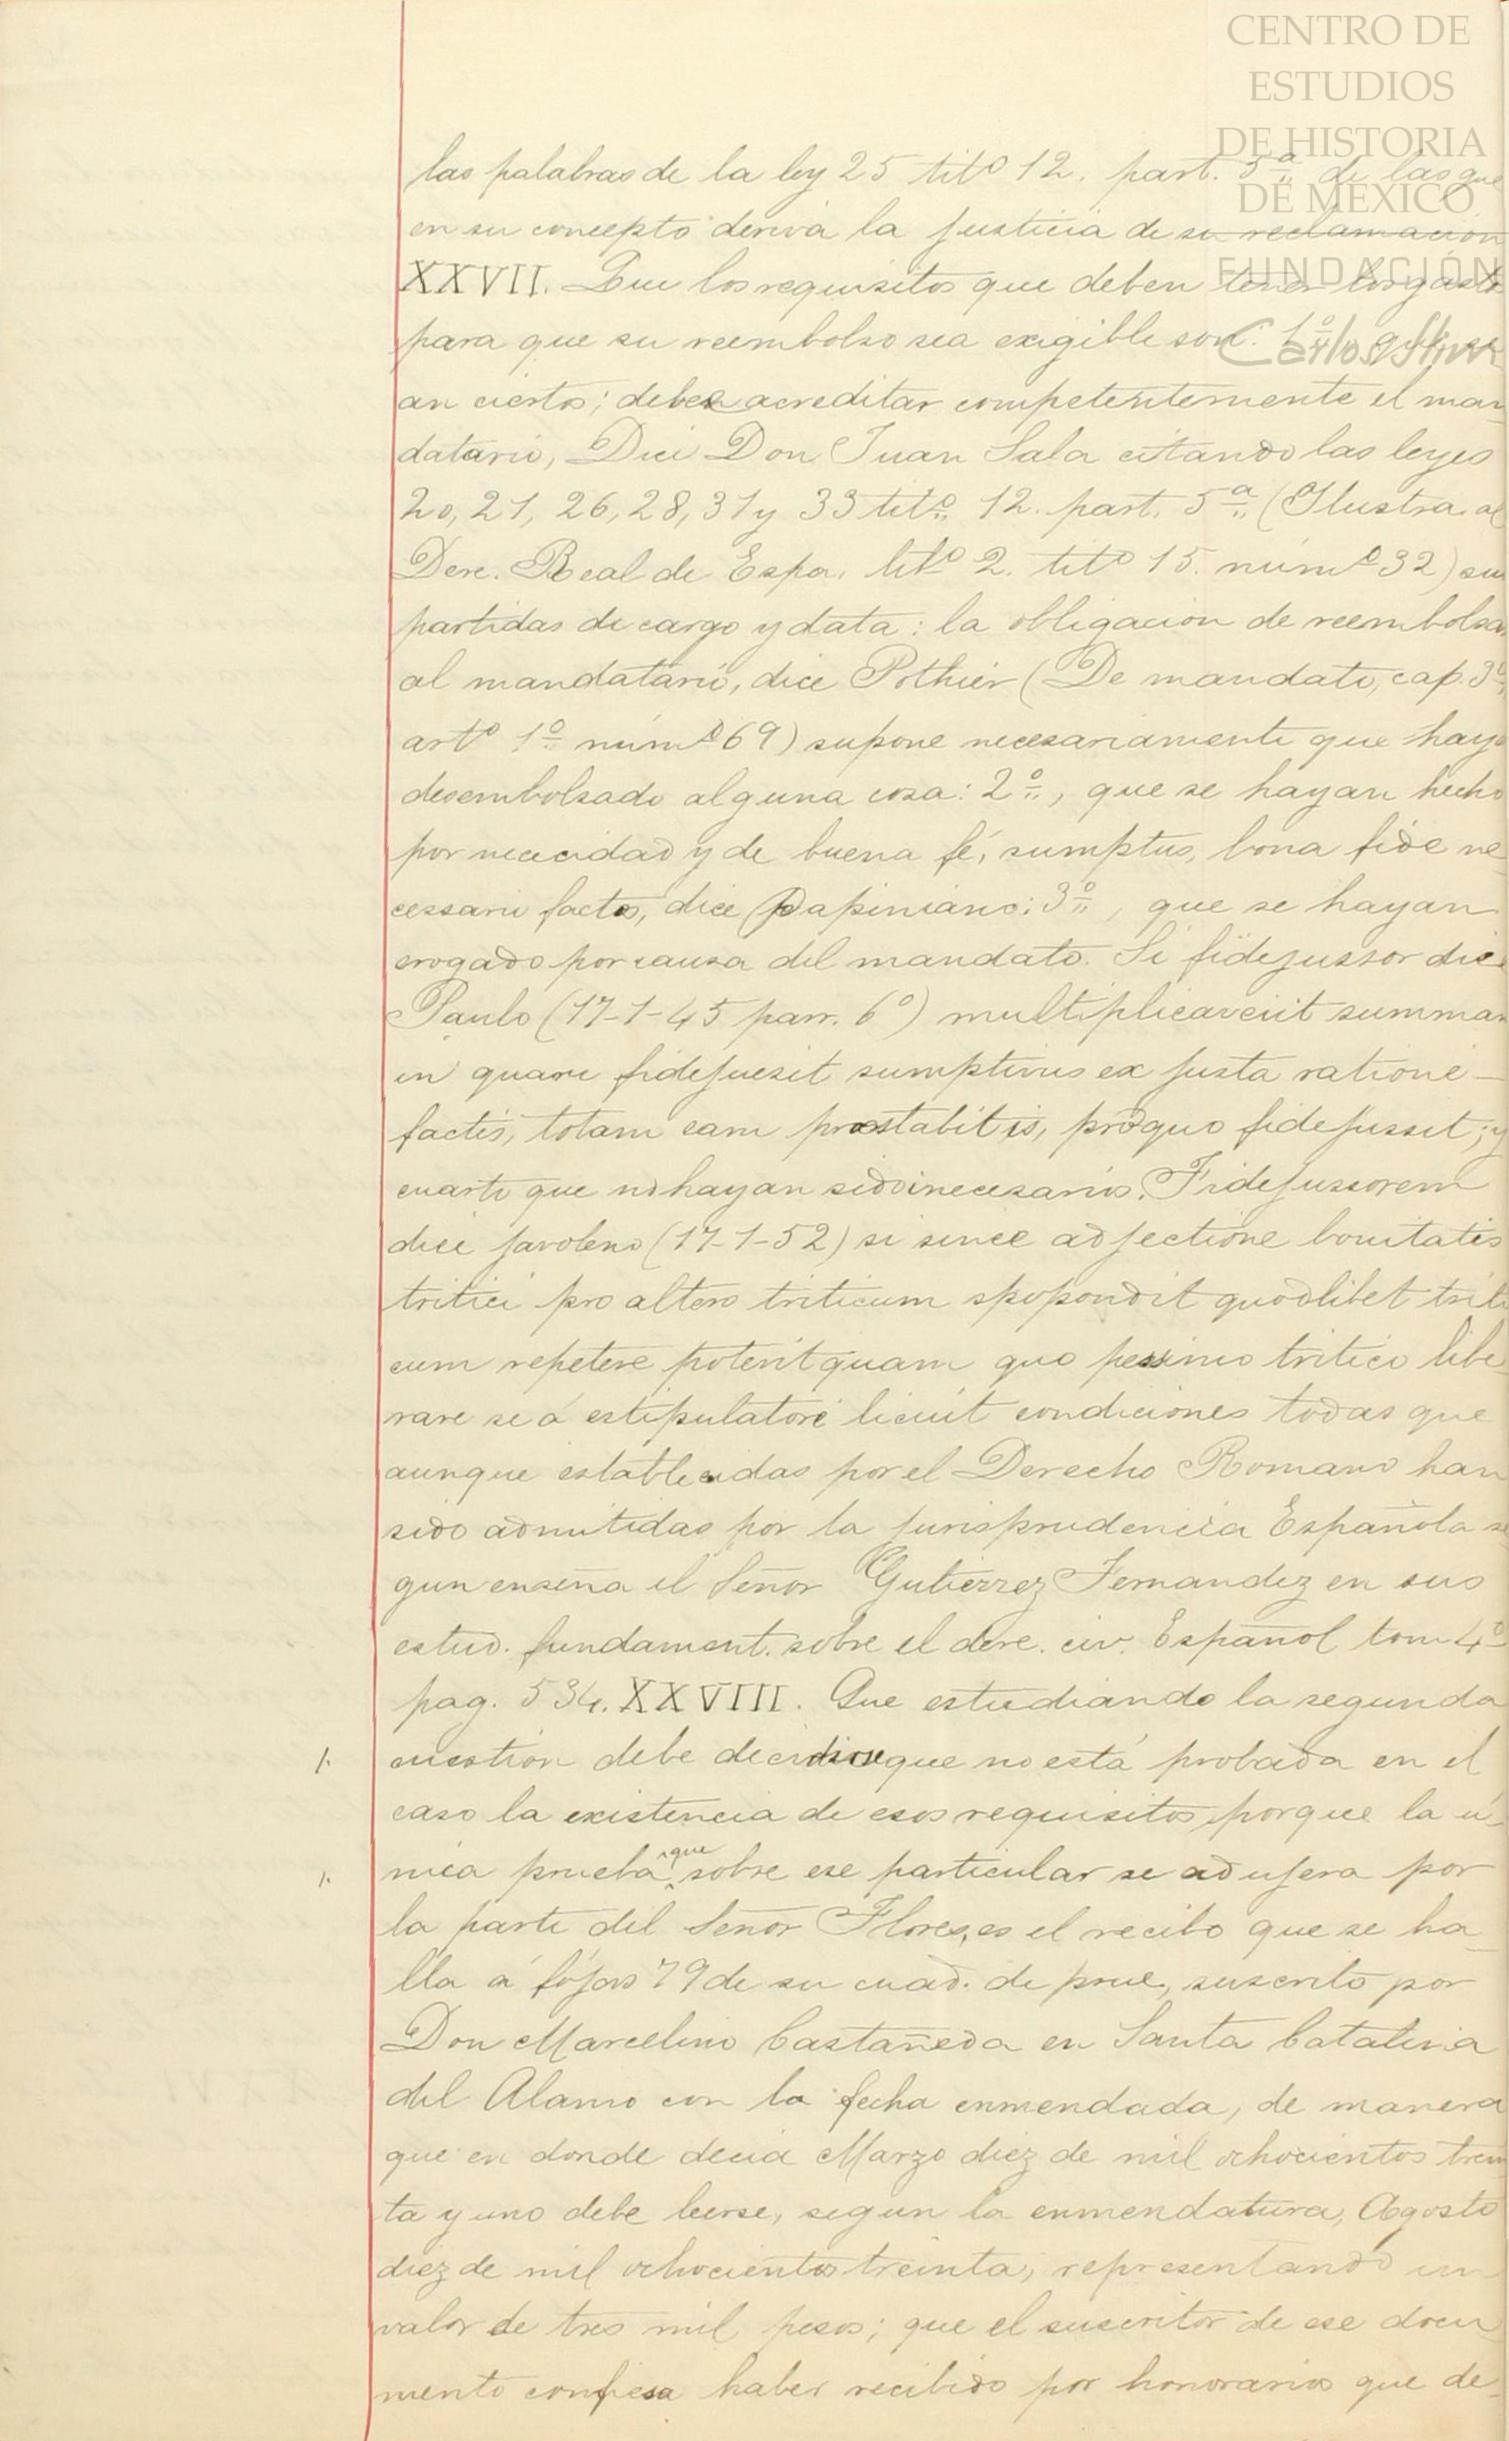 CENTRO DE
ESTUDIOS
DE HISTORIA
DE MEXICO
FUNDACIÓN
Carlos Slim
las palabras de la ley 25 titº 12. part. 5ª de las que
en su concepto deriva la justicia de su reclamacion
XXVII. Que los requisitos que deben tener los gastos
para que su reembolso sea exigible son: 1º que se
an ciertos; debe acreditar competentemente el man
datario, Dice Don Juan Sala citando las leyes
20, 21, 26, 28, 31 y 33 titº 12. part. 5ª (Ilustra. al
Dere. Real de Espa. libº 2. titº 15. numº 32) sus
partidas de cargo y data: la obligacion de reembolsar
al mandatario, dice Pothier (De mandato, cap. 3º,
artº 1º númº 69) supone necesariamente que haya
desembolsado alguna cosa: 2º, que se hayan hecho
por necesidad y de buena fé, sumptus, bona fide ne
cessarii factos, dice Papiniano: 3º, que se hayan
erogado por causa del mandato. Si fidejussor dice
Paulo (17-1-45 parr. 6º) multiplicaverit summan
in quam fidejuesit sumptivus ex justa ratione —
factis, totam eam praestabit is, pro quo fidejussit; y
cuarto que no hayan sido inecesarios. Fidejussorem
dice Javoleno (17-1-52) si sinee adjectione bonitatis
tritici pro altero triticum spopondit quodlibet triti
cum repetere poterit quam quo pessimo tritico libe
rare se á estipulatore licuit condiciones todas que
aunque establecidas por el Derecho Romano han
sido admitidas por la jurisprudencia Española se
gun enseña el Señor Gutierrez Fernandez en sus
estud. fundament. sobre el dere. civ. Español tom 4º
pag. 534. XXVIII. Que estudiando la segunda
1. cuestion debe decidirse que no está probada en el
caso la existencia de esos requisitos, porque la ú
1. nica prueba que sobre ese particular se adujera por
la parte del Señor Flores, es el recibo que se ha
lla á fójas 79 de su cuad. de prue, suscrito por
Don Marcelino Castañeda en Santa Catalina
del Alamo con la fecha enmendada, de manera
que en donde decia Marzo diez de mil ochocientos trein
ta y uno debe leerse, segun la enmendatura, Agosto
diez de mil ochocientos treinta, representando un
valor de tres mil pesos; que el suscritor de ese docu
mento confiesa haber recibido por honorarios que de